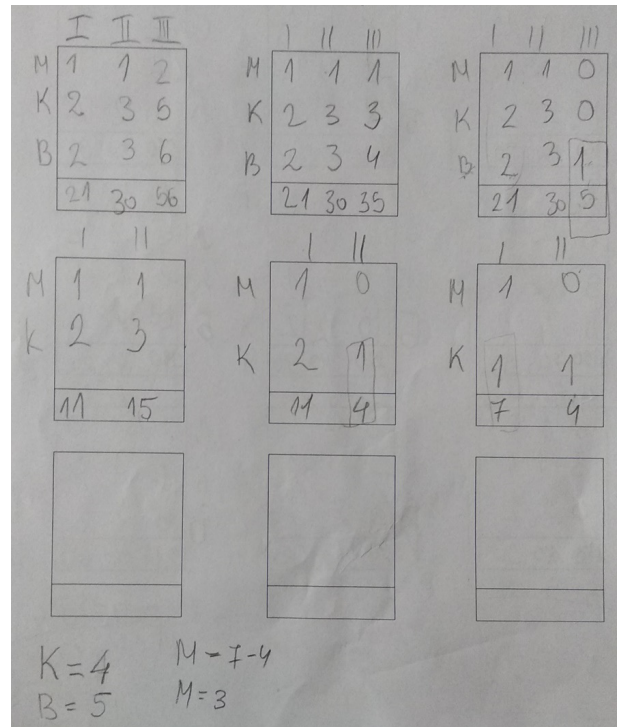 I II III
M 1 1 2
K 2 3 5
B 2 3 6
21 30 56
I II III
M 1 1 1
K 2 3 3
B 2 3 4
21 30 35
I II III
M 1 1 0
K 2 3 0
B 2 3 1
21 30 5
I II
M 1 1
K 2 3
11 15
I II
M 1 0
K 2 1
11 4
I II
M 1 0
K 1 1
7 4
K=4
B=5
M=7-4
M=3